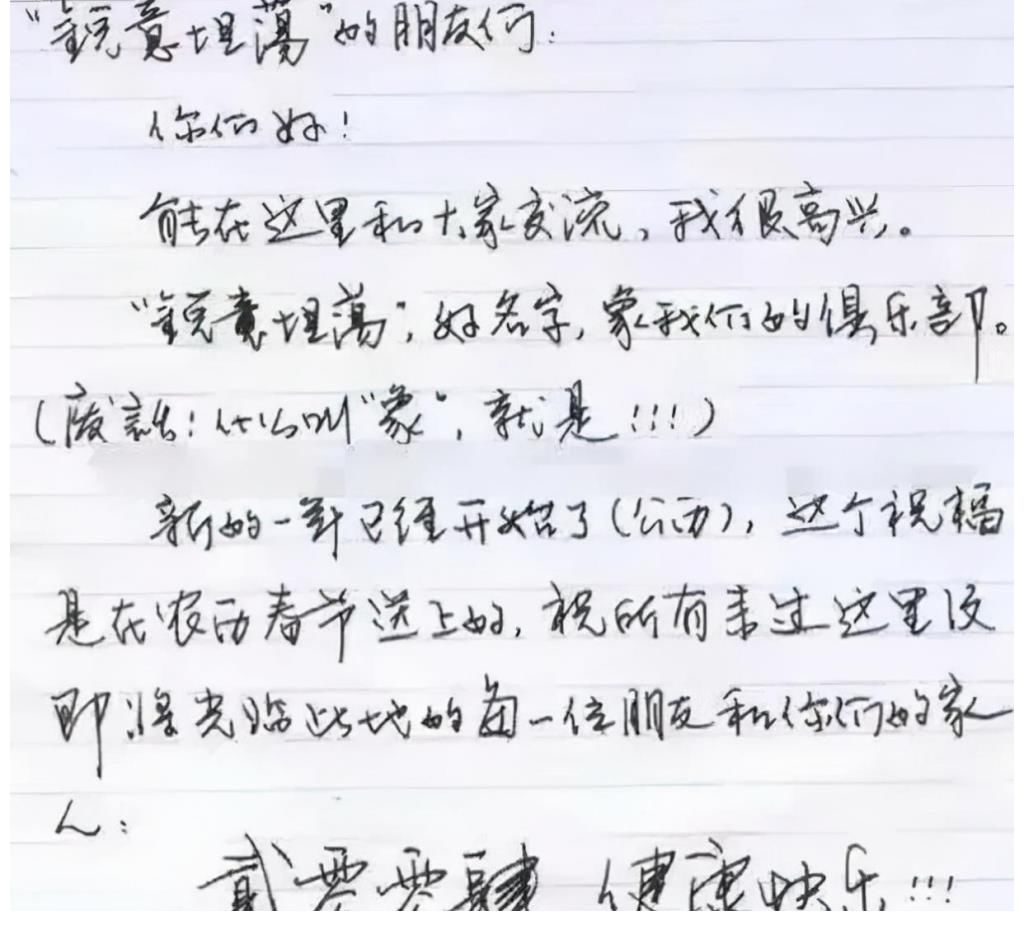 “锐意坦荡”的朋友们：
你们好！
能在这里和大家交流，我很高兴。
“锐意坦荡”，好名字，象我们的俱乐部。
（废话！什么叫“象”，就是！！！）
新的一年已经开始了（公历），这个祝福
是在农历春节送上的，祝所有来过这里及
即将光临此地的每一位朋友和你们的家
人：
贰零零肆 健康快乐！！！